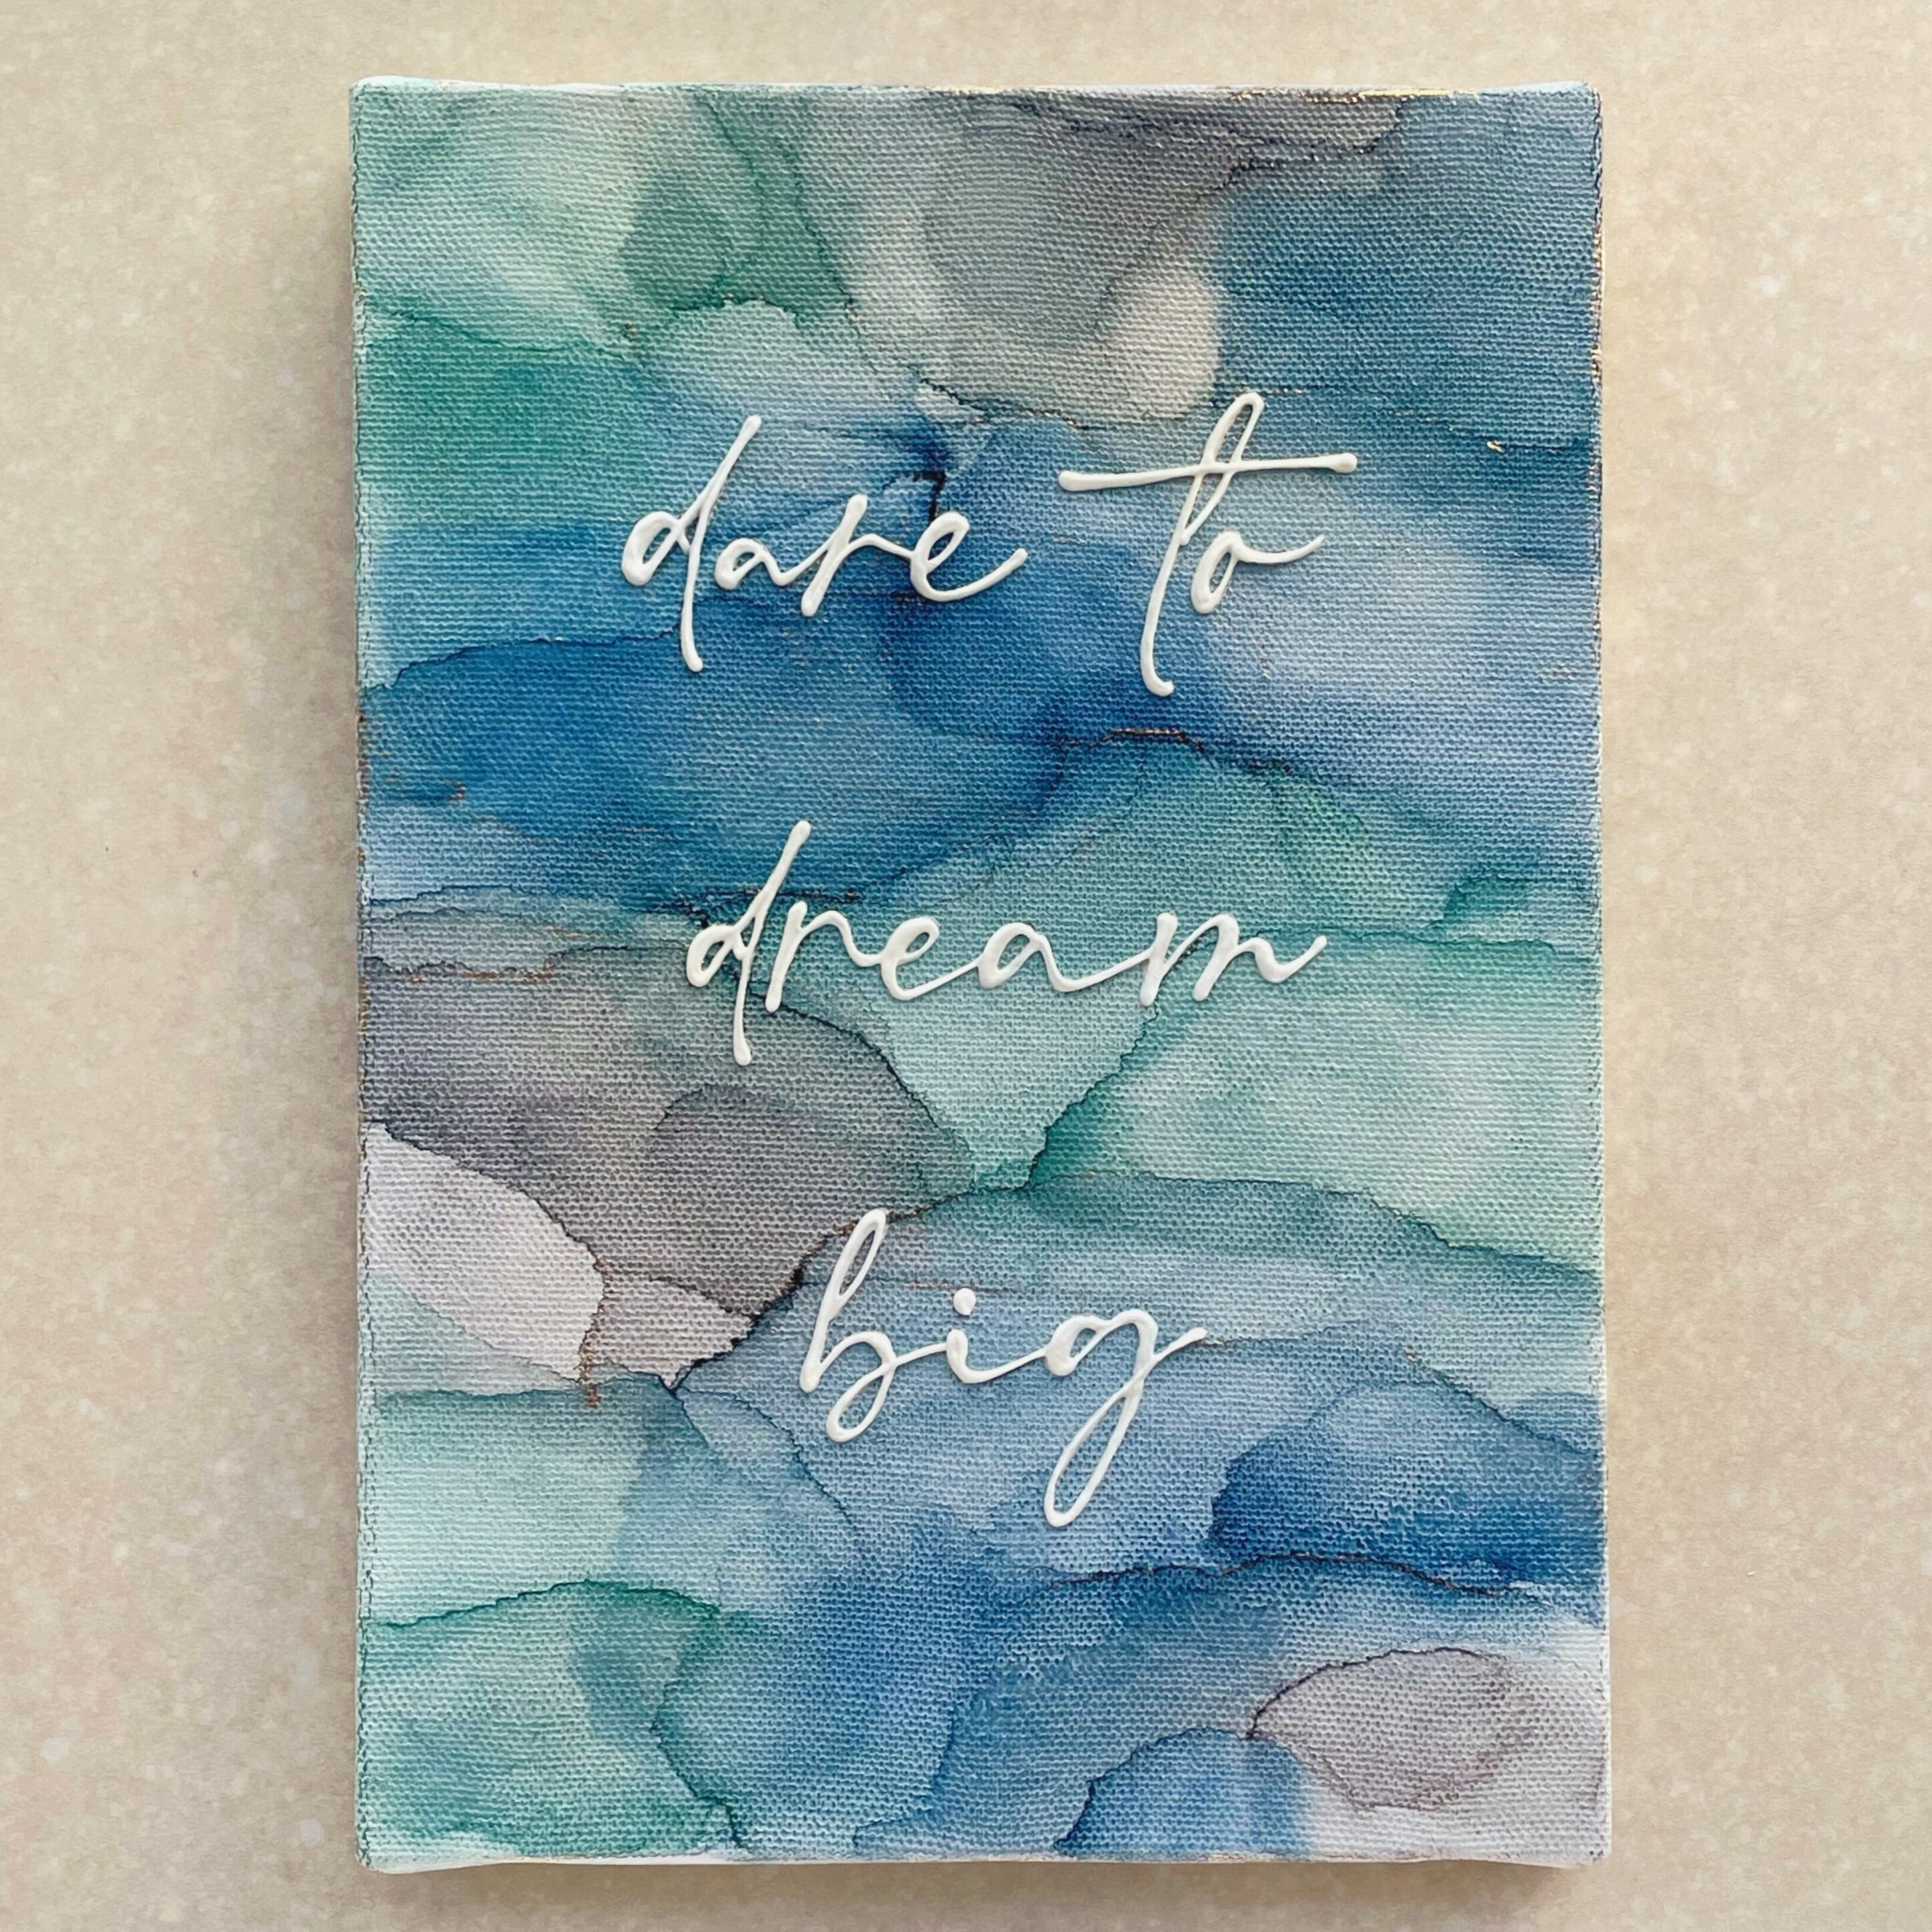 dare to
dream
big